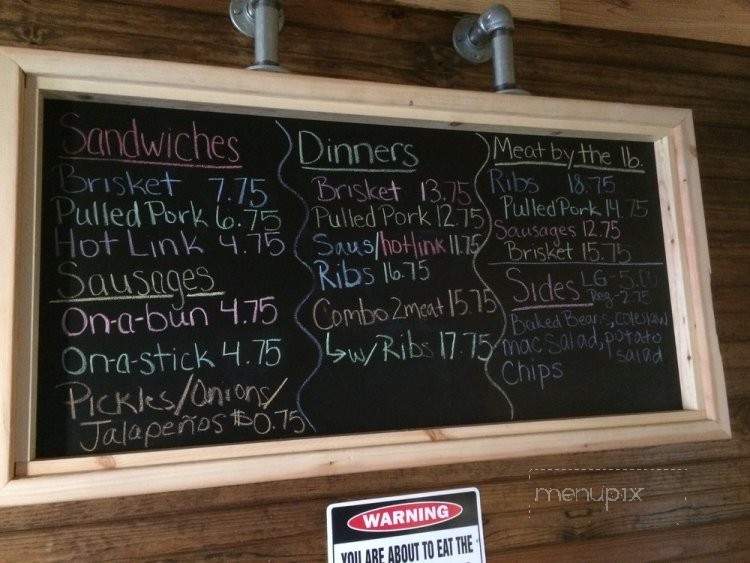 Sandwiches
Brisket 7.75
Pulled Pork 6.75
Hot Link 4.75
Sausages
On-a-bun 4.75
On-a-stick 4.75
Pickles/Onions/
Jalapeños $0.75
Dinners
Brisket 13.75
Pulled Pork 12.75
Saus/hotlink 11.75
Ribs 16.75
Combo 2meat 15.75
↳w/Ribs 17.75
Meat by the lb.
Ribs 18.75
Pulled Pork 14.75
Sausages 12.75
Brisket 15.75
Sides
LG-5.00
Reg-2.75
Baked Beans, coleslaw
mac Salad, potato
salad
Chips
menupix
WARNING
YOU ARE ABOUT TO EAT THE